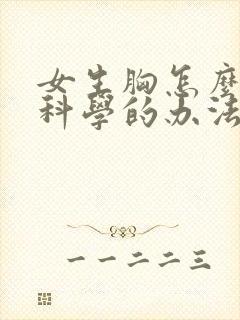 女生胸怎麼
科學的办法
一一二二三